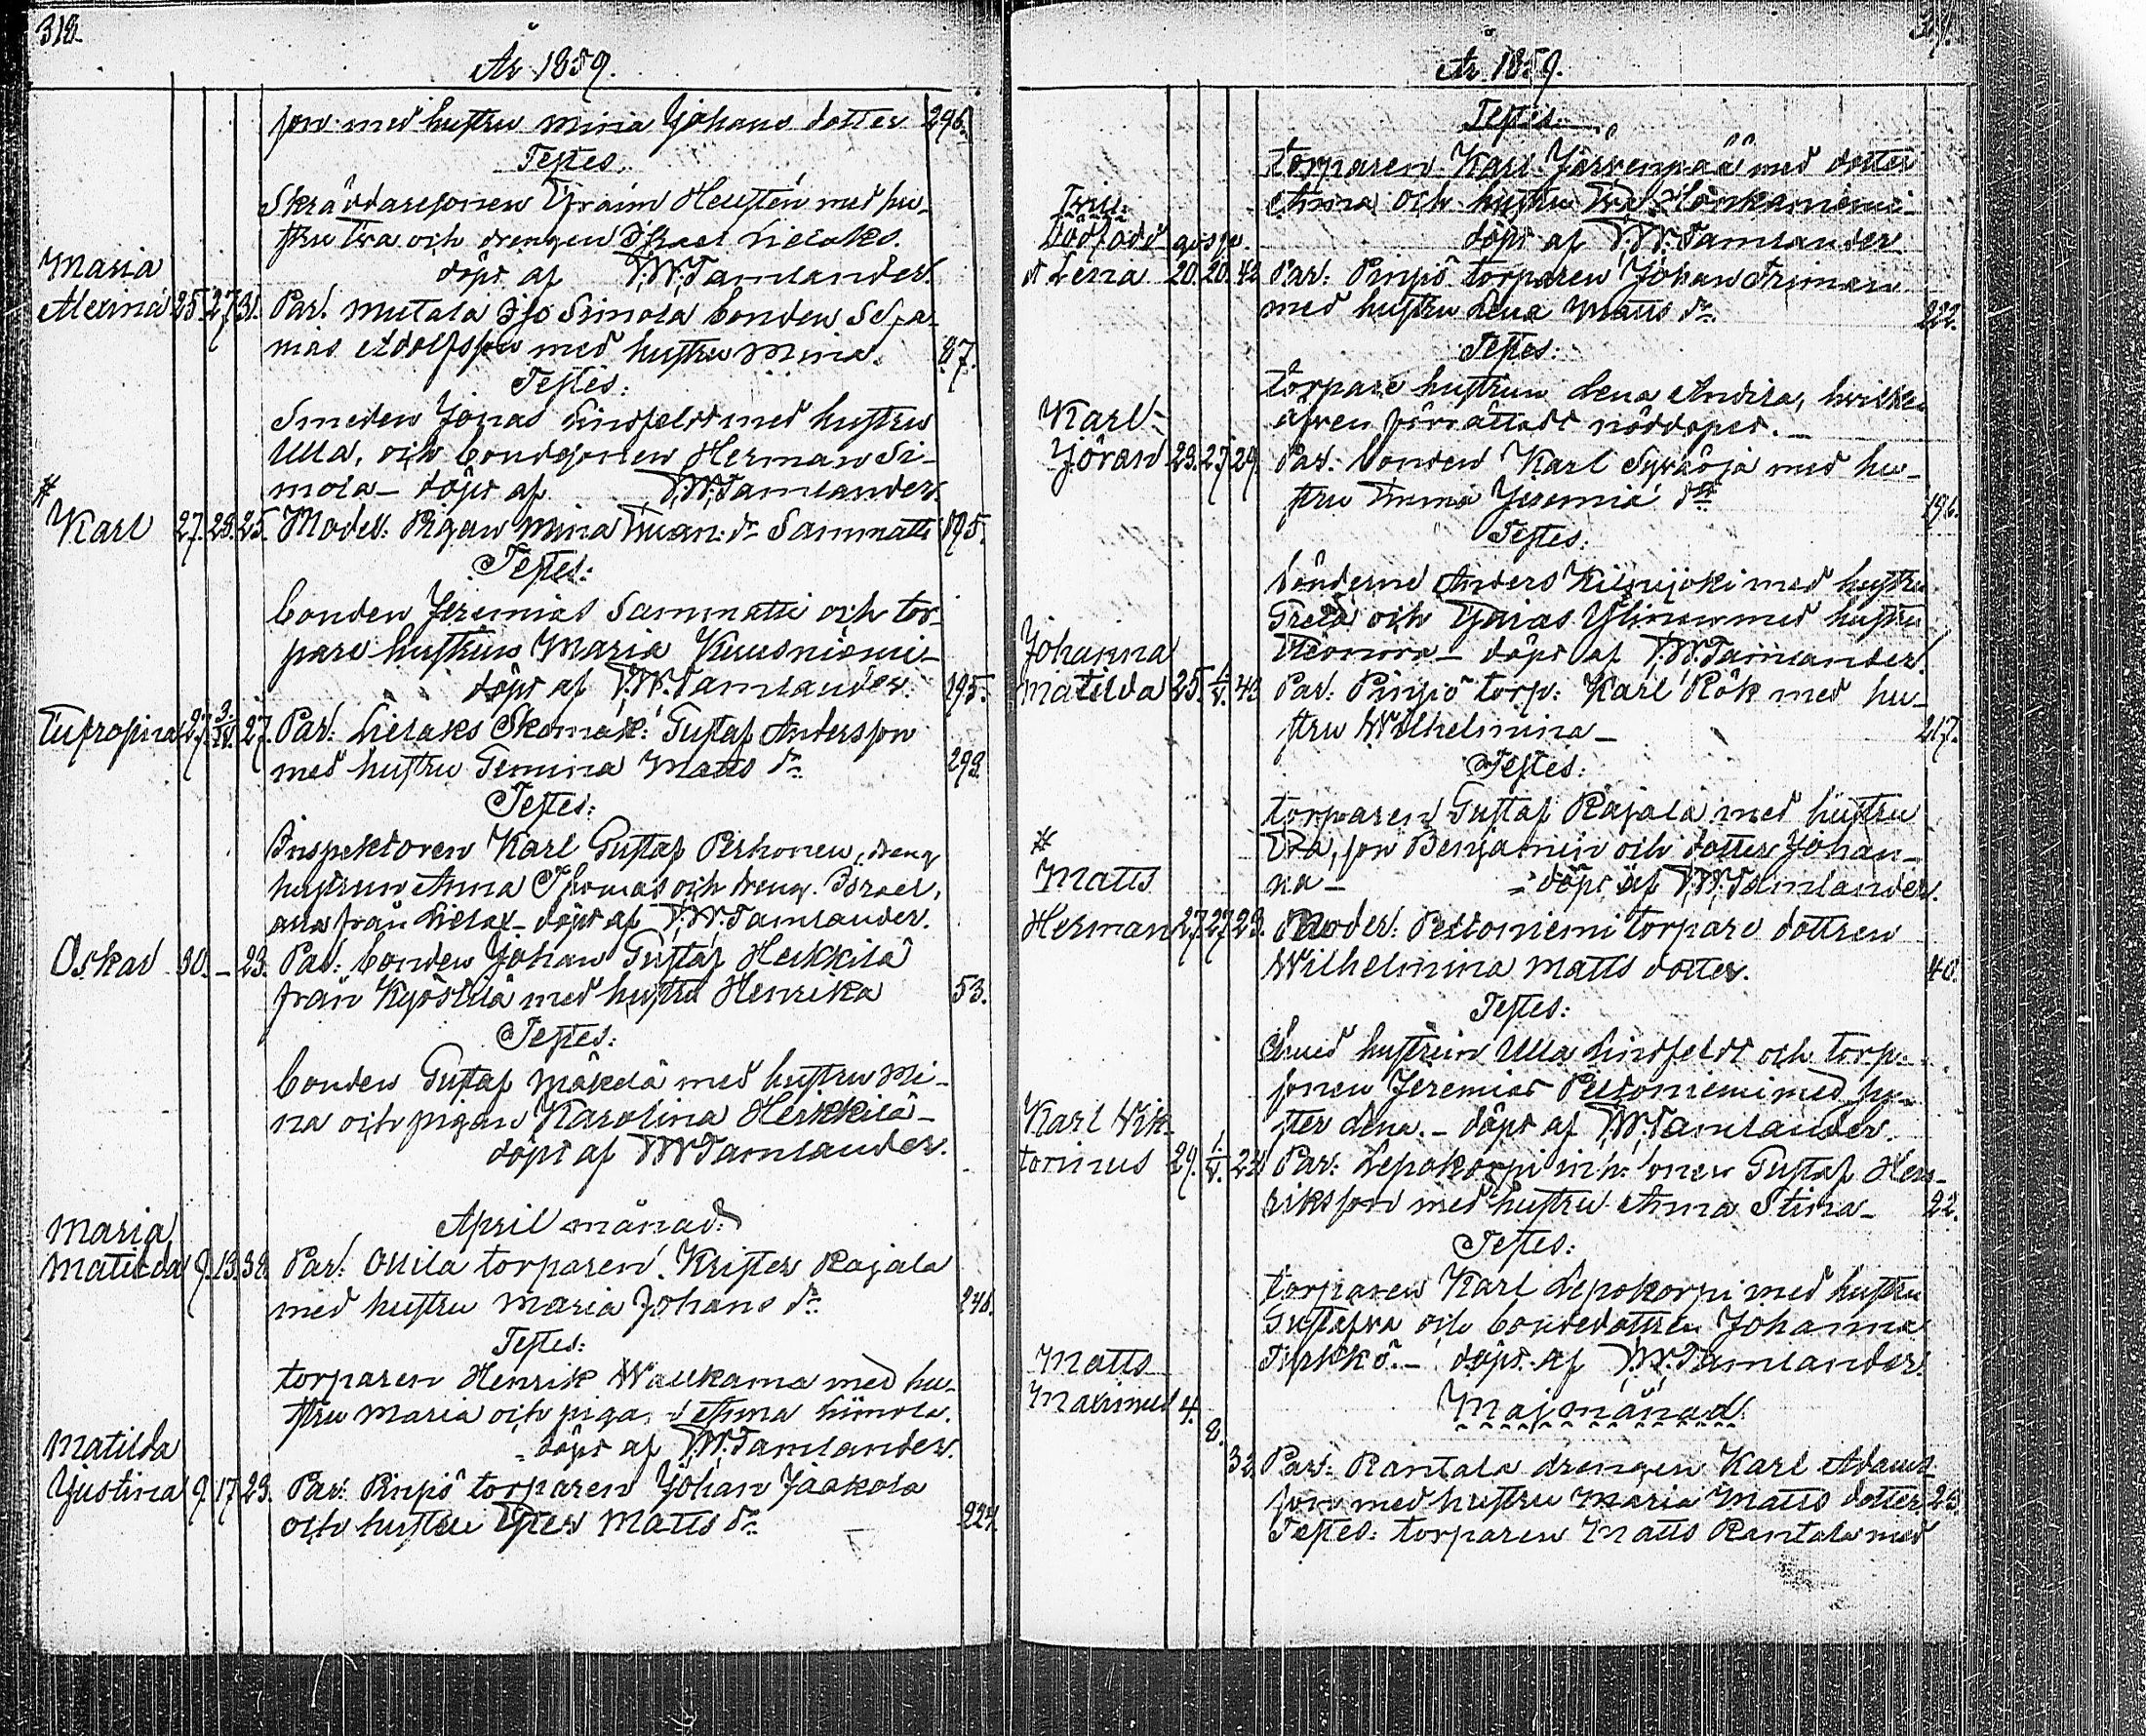 318.
År 1859.
son med hustru Mina Johans dotter 296.
Testes.
Skräddaresonen Efraim Heusten med hu-
stru Eva och drengen Israel Lielaks.
Maria
döpt af F.W. Tamlander.
Alexina 25. 27. 31. Par. Mutala Iso Simola bonden Sefa-
nias Adolfsson med hustru Mina. 87.
Testes:
Smeden Jonas Lindfeldt med hustru
Ulla, och bondesonen Herman Si-
#
mola – döpt af F.W. Tamlander.
Karl 27. 28. 25. Moder: Pigan Mina Eman. dr Sammatti 195.
Testes:
bonden Jeremias Sammatti och tor-
pare hustrun Maria Kuusniemi –
döpt af F.W. Tamlander. 195.
Eufrosina 27. 3/IV. 27. Par: Lielaks Skomak: Gustaf Andersson
med hustru Gemina Matts dr 293.
Testes:
Inspektoren Karl Gustaf Perhonen, dreng
hustrun Anna Thomas och dreng. Israel,
alla från Lielax – döpt af F.W. Tamlander.
Oskar 30. – 23. Par: bonden Johan Gustaf Heikkilä
från Kyöstilä med hustru Henrika 53.
Testes:
bonden Gustaf Mäkelä med hustru Mi-
na och pigan Karolina Heikkilä –
döpt af F.W. Tamlander.
April månad:
Maria
Matilda 9. 13. 38. Par: Ollila torparen Krister Rajala
med hustru Maria Johans dr 246.
Testes:
torparen Henrik Waukama med hu-
stru Maria och piga Anna
döpt af F.W. Tamlander.
Matilda
Justina 9. 17. 23. Par: Pinsiö torparen Johan Jaakola
och hustru Matts dr 224.
319.
År 1859.
Testes:
torparen Karl Järvenpää med dotter
Anna och hustru Eva Honkaniemi –
döpt af F.W. Tamlander.
Dödfödd
Lena 20. 20. 42. Par: Pinsiö torparen Johan Friman
med hustru Lena Matts dr 222.
Testes:
torpare hustrun Lena Andira, hvilken
äfven förrättadt nöddopet. –
Karl
Jöran 23. 27. 29. Par: bonden Karl Syväoja med hu-
stru Emma Jeremiä dr 196.
Testes:
bönderne Anders Kilvijoki med hustru
Greta och Esaias Ylinen med hustru
Eleonora – döpt af F.W. Tamlander.
Johanna
Matilda 25. 1/V. 42. Par: Pinsiö torp: Karl Rök med hu-
stru Wilhelmina – 217.
Testes:
torparen Gustaf Rajala med hustru
Eva, son Benjamin och dotter Johan-
na – döpt af F.W. Tamlander.
#
Matts
Herman 27. 27. 23. Moder: Peltoniemi torpare dottren
Wilhelmina Matts dotter. 40.
Testes:
Smed hustrun Ulla Lindfeldt och torp.
sonen Jeremias Peltoniemi med sy-
ster Lena. – döpt af F.W. Tamlander.
Karl Wik-
torinus 29. 1/V. 23. Par: Lepokorpi inh: Gustaf Hen-
riksson med hustru Anna Stina – 22.
Testes:
torparen Karl Lepokorpi med hustru
Gustafva och bondedottren Johanna
– döpt af F.W. Tamlander.
Maj månad
Matts
Maximus 4. 8. 32. Par: Rantala drengen Karl Adams-
son med hustru Maria Matts dotter 25.
Testes: torparen Matts Rantala med